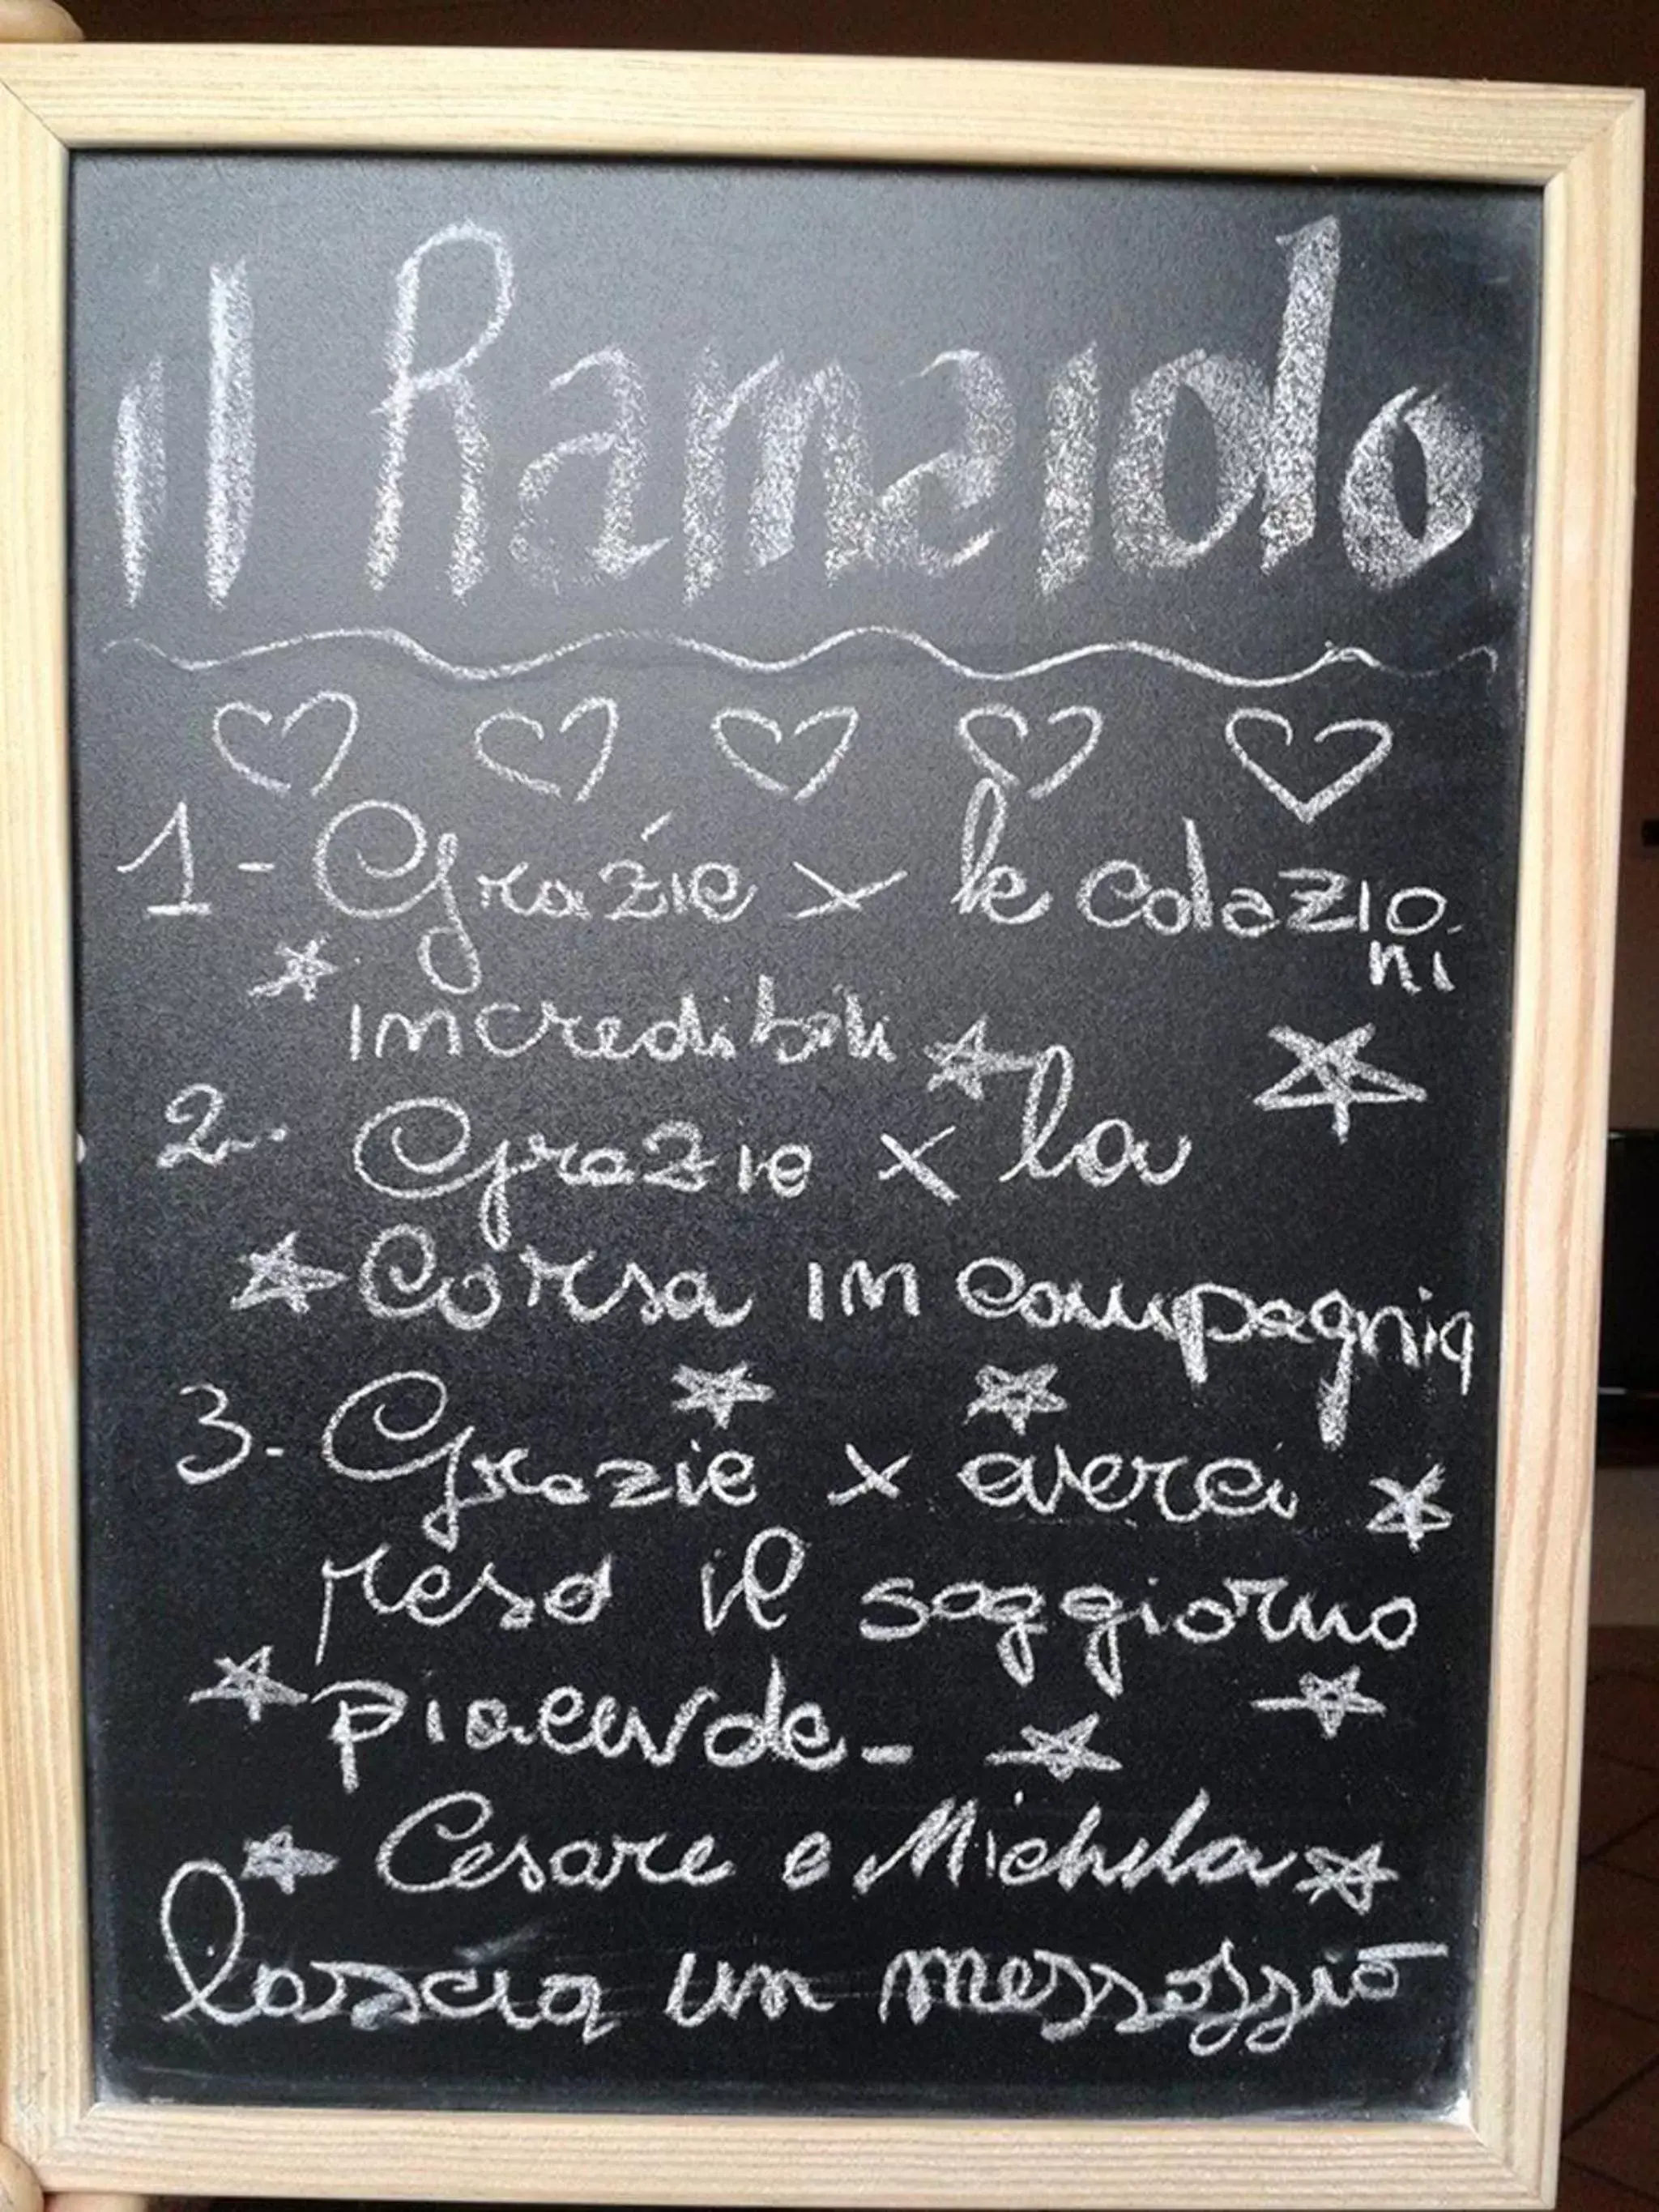 il Ramaiolo
1- Grazie x le colazio-
ni
incredibili
2- Grazie x la
Corsa in compagnia
3- Grazie x averci
reso il soggiorno
piacevole-
Cesare e Michela
lascia un messaggio